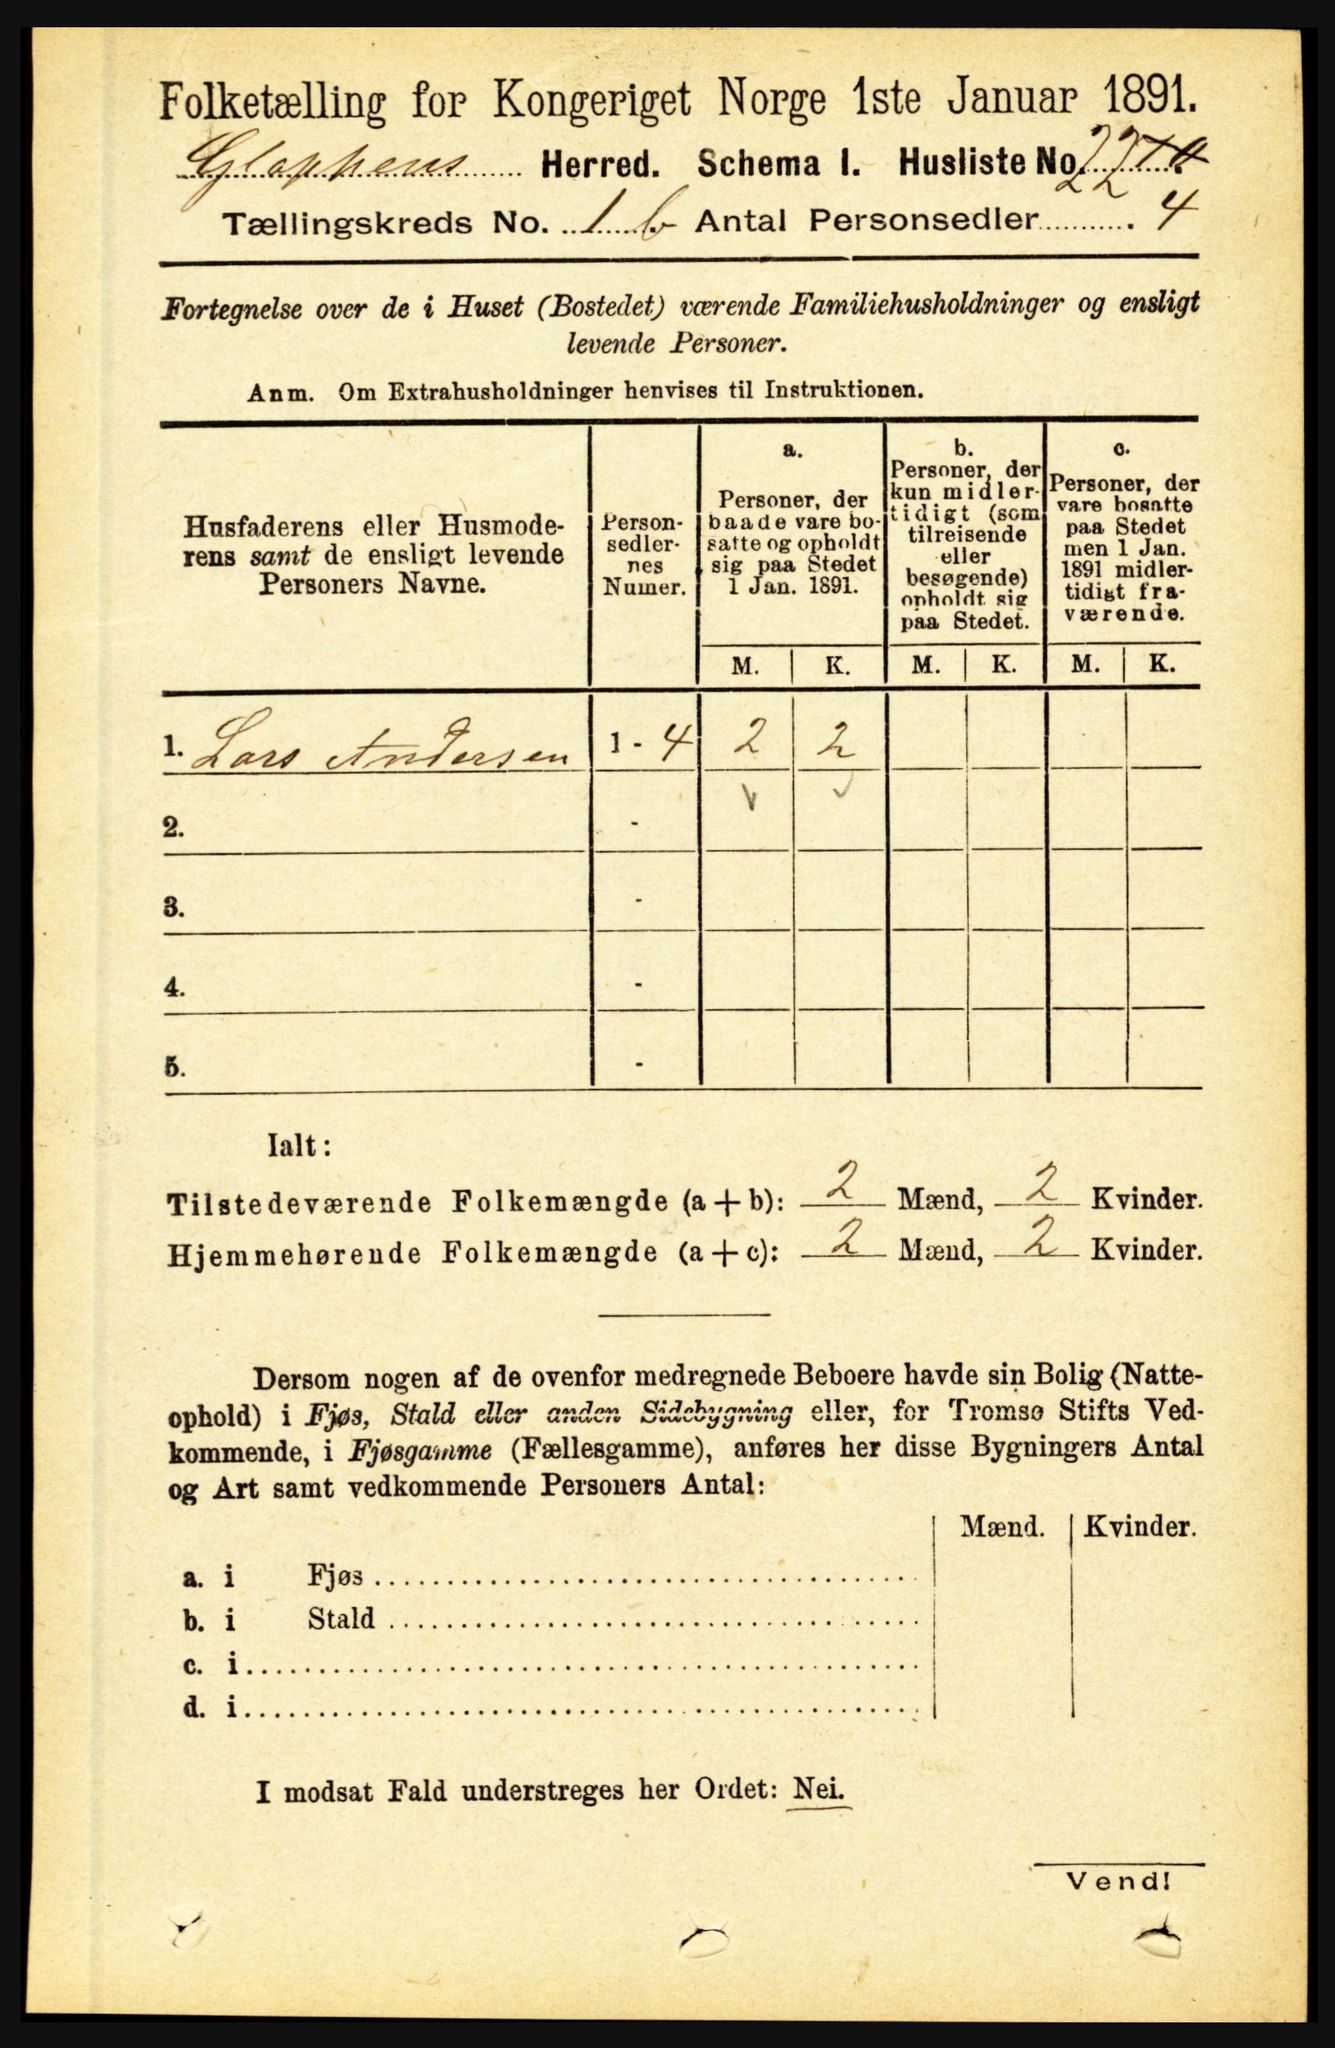 Folketælling for Kongeriget Norge 1ste Januar 1891.
Gloppens Herred. Schema I. Husliste No. 22
Tællingskreds No. 1 b Antal Personsedler 4
Fortegnelse over de i Huset (Bostedet) værende Familiehusholdninger og ensligt
levende Personer.
Anm. Om Extrahusholdninger henvises til Instruktionen.
Husfaderens eller Husmode-
rens samt de ensligt levende
Personers Navne.
Person-
sedler-
nes
Numer.
a.
Personer, der
baade vare bo-
satte og opholdt
sig paa Stedet
1 Jan. 1891.
b.
Personer, der
kun midler-
tidigt (som
tilreisende
eller
besøgende)
opholdt sig
paa Stedet.
c.
Personer, der
vare bosatte
paa Stedet
men 1 Jan.
1891 midler-
tidigt fra-
værende.
M. K. M. K. M. K.
1. Lars Andersen 1 - 4 2 2
2. -
3. -
4. -
5. -
Ialt:
Tilstedeværende Folkemængde (a + b): 2 Mænd, 2 Kvinder.
Hjemmehørende Folkemængde (a + c): 2 Mænd, 2 Kvinder.
Dersom nogen af de ovenfor medregnede Beboere havde sin Bolig (Natte-
ophold) i Fjøs, Stald eller anden Sidebygning eller, for Tromsø Stifts Ved-
kommende, i Fjøsgamme (Fællesgamme), anføres her disse Bygningers Antal
og Art samt vedkommende Personers Antal:
Mænd. Kvinder.
a. i Fjøs
b. i Stald
c. i
d. i
I modsat Fald understreges her Ordet: Nei.
Vend!